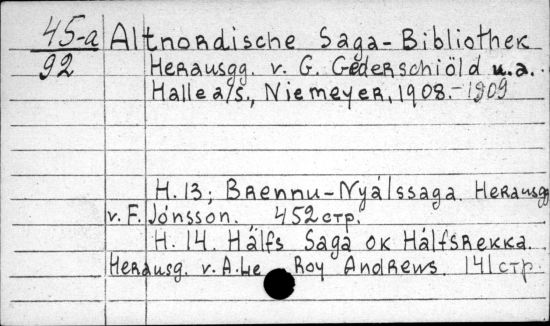 45-a Altnordische Saga-Bibliothek
92 Herausgg. v. G. Gederschiöld u.a.
Halle a/s., Niemeyer, 1908.-1909
H. 13; Brennu-Nyálssaga. Herausgg
v. F. Jónsson. 452 стр.
H. 14. Hálfs Saga ok Hálfsrekka.
Herausg. v. A. Le Roy Andrews. 141 стр.